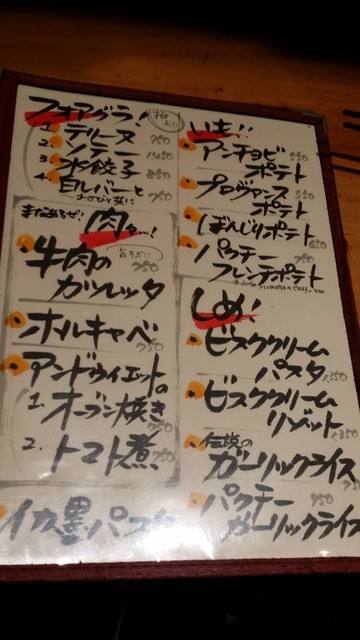 フォアグラ!
1. テリーヌ 950
2. ソテー
3. 水餃子 850
4. 白レバーと 750
わさびと友に
まだあるぜ!
肉々…!
牛肉の
カツレッタ 750
ホルキャベ 750
アンドゥイエットの
1. オーブン焼き
2. トマト煮 750
イカ墨パスタ
いも!!
アンチョビ 550
ポテト
プロヴァンス 550
ポテト
ぼんじりポテト 650
パクチー 750
フレンチポテト
しめ!
ビスククリーム
パスタ 1350
ビスククリーム
リゾット 1350
伝説の
ガーリックライス
パクチー 950
ガーリックライス